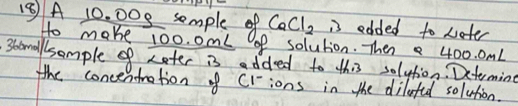 18) A 10.00g sample of CaCl2 is added to water
to make 100.0mL of solution. Then a 400.0mL
sample of water is added to this solution. Determine
the concentration of Cl- ions in the diluted solution.